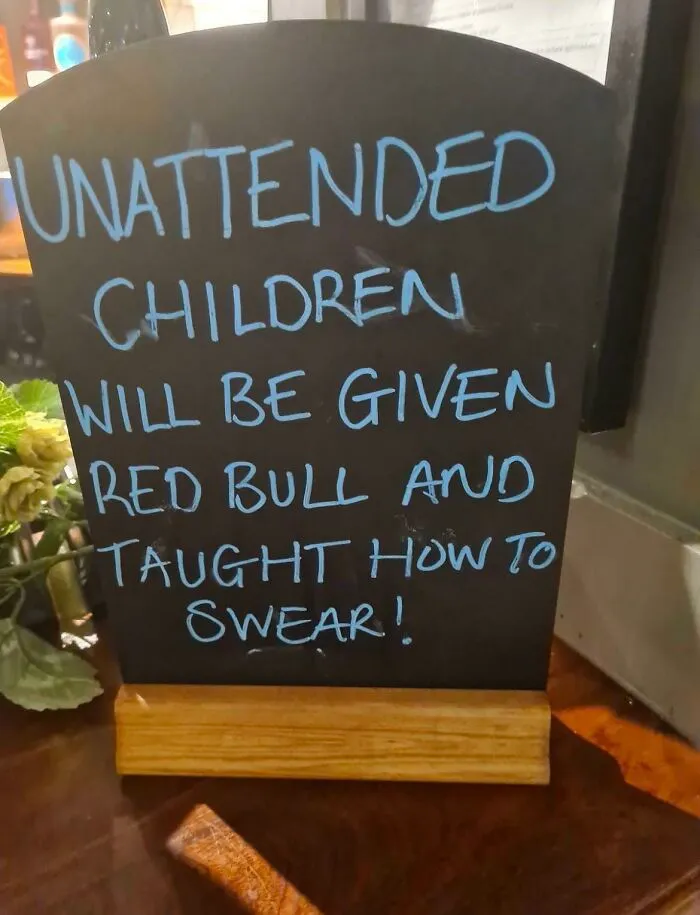 UNATTENDED
CHILDREN
WILL BE GIVEN
RED BULL AND
TAUGHT HOW TO
SWEAR!